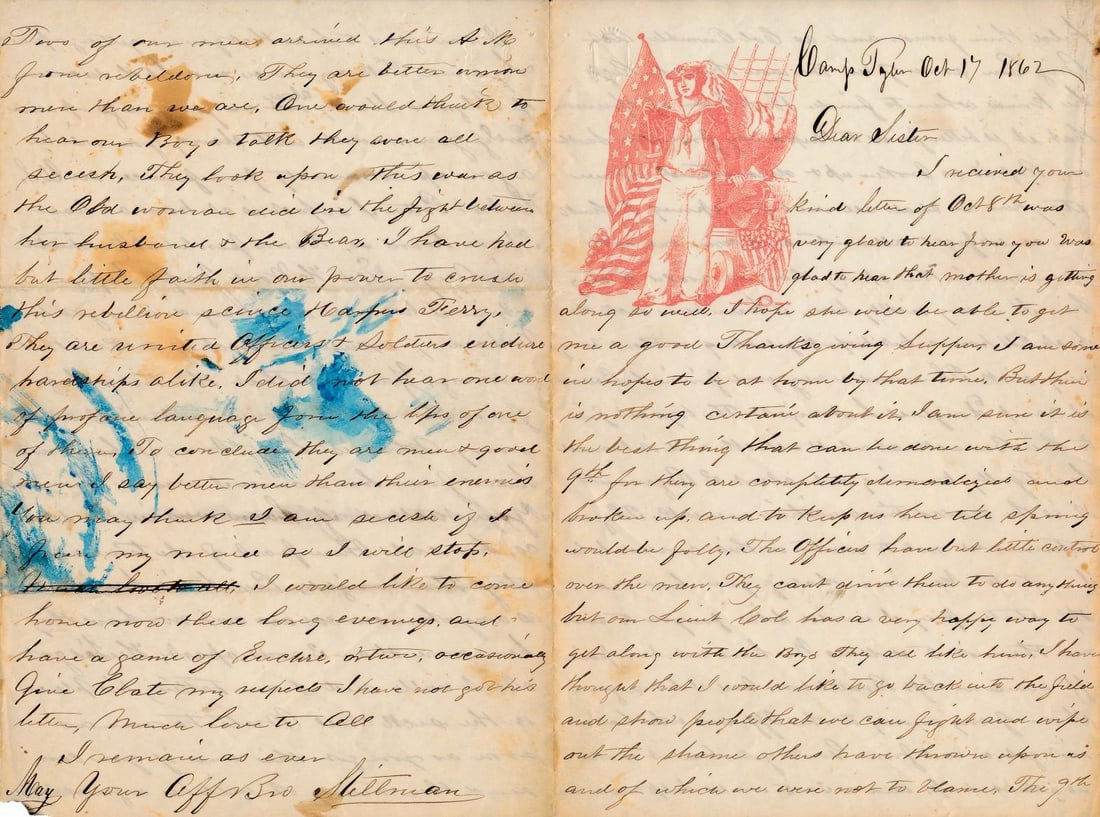 Camp Tyler Oct 17 1862
Dear Sister
I recieved your
kind letter of Oct 8th was
very glad to hear from you Was
glad to hear that mother is getting
along so well. I hope she will be able to get
me a good Thanksgiving Supper, I am some
in hopes to be at home by that time. But their
is nothing certain about it, I am sure it is
the best thing that can be done with the
9th for they are completly demoralized and
broken up, and to keep us here till spring
would be folly, The Officers have but little control
over the men, They cant drive them to do any thing
but our Lieut Col has a very happy way to
get along with the Boys They all like him, I have
thought that I would like to go back into the field
and show people that we can fight and wipe
out the shame others have thrown upon us
and of which we were not to blame, The 9th
Two of our men arrived this A M
from rebeldom, They are better union
men than we are, One would think to
hear our Boys talk they were all
secesh, They look upon this war as
the Old woman did on the fight between
her husband & the Bear, I have had
but little faith in our power to crush
this rebellion scince Harpers Ferry,
They are united Officers & Soldiers endure
hardships alike, I did not hear one word
of profane language from the lips of one
of them, To conclude they are men & good
men I say better men than their enemies
You may think I am secesh if I
my mind so I will stop.
I would like to come
home now these long evenigs, and
have a game of Euchre, or two, occasionaly
Give Clate my respects I have not got his
letter, Much love to All
I remain as ever
May Your Aff Bro Millman